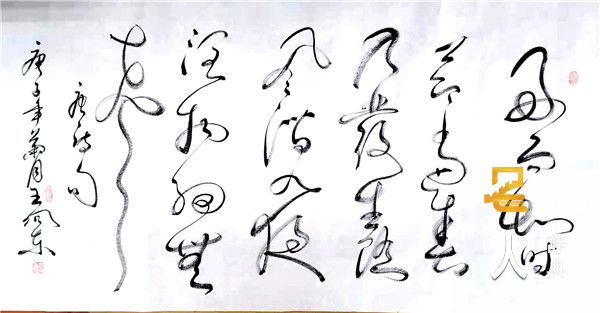 好雨知时
节当春
乃發生随
风潜入夜
润物细無
声
唐诗句
庚子年月王风东